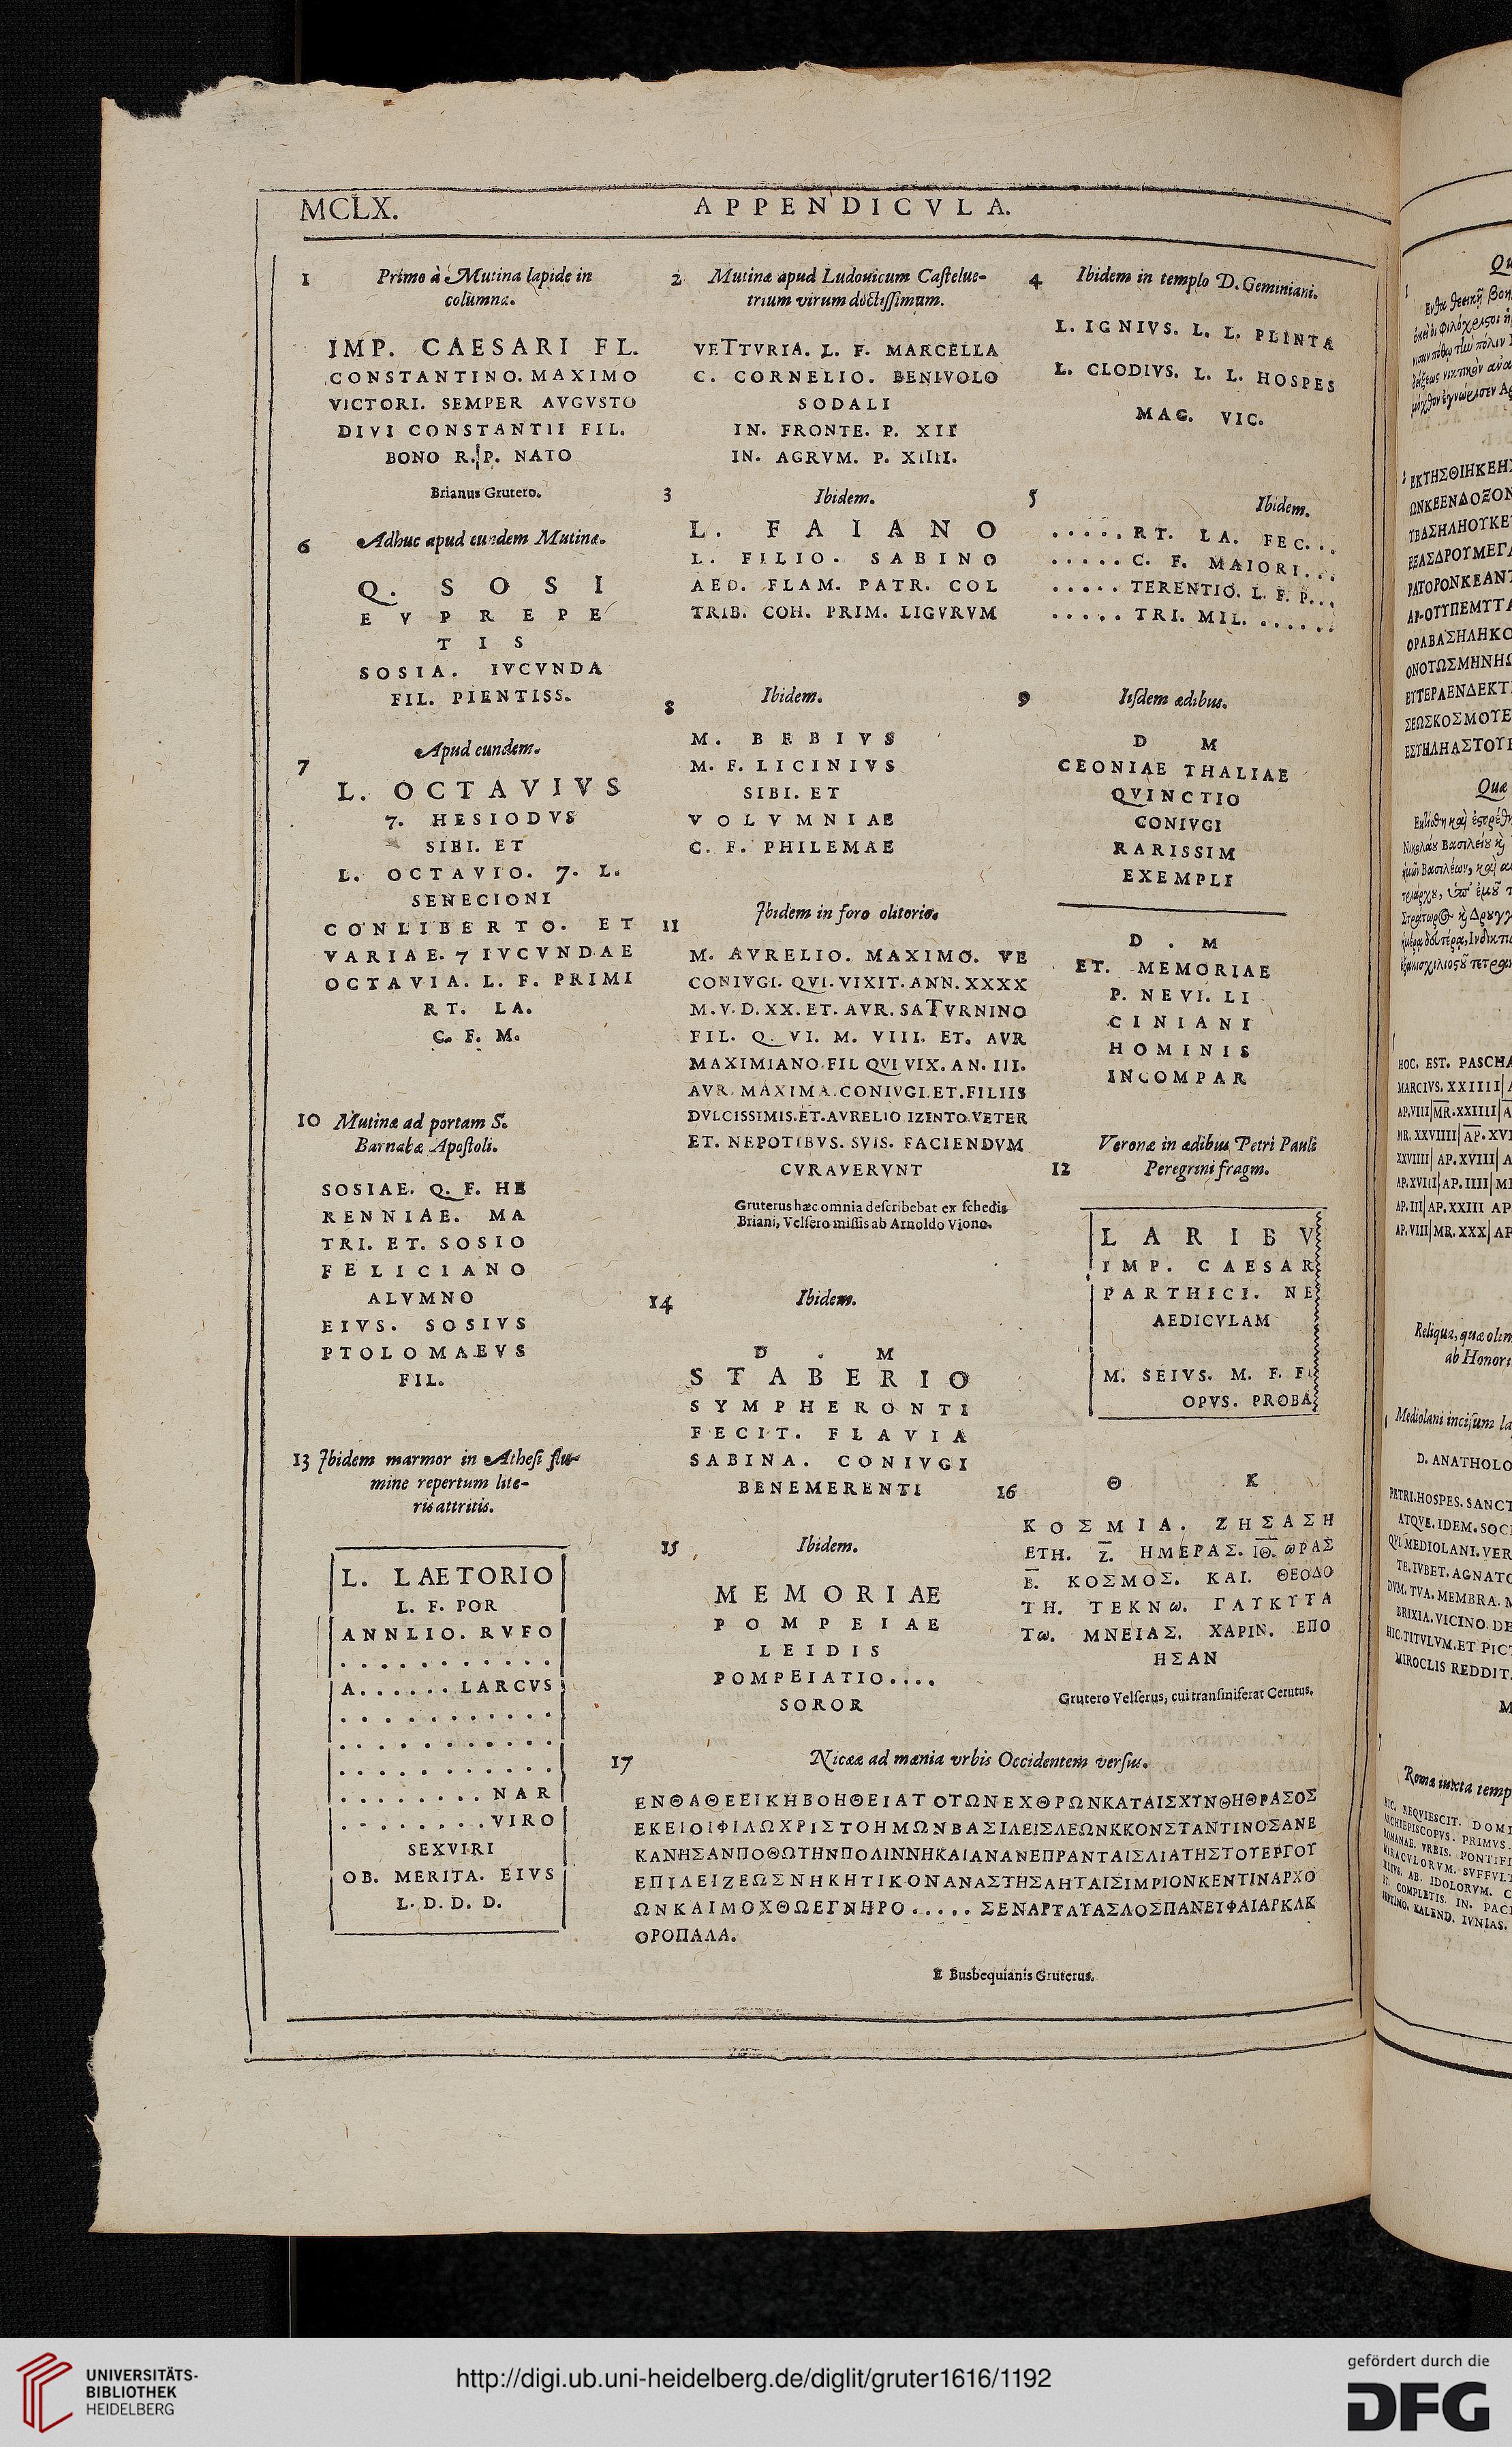 MCLX.
APPENDICVLA.
1
Primo à Mutina lapide in
columna.
IMP. CAESARI FL.
CONSTANTINO. MAXIMO
VICTORI. SEMPER AVGVSTO
DIVI CONSTANTII FIL.
BONO R. P. NATO
Brianus Grutero.
2
Mutinæ apud Ludouicum Casteluetrium virum doctissimum.
VETTVRIA. L. F. MARCELLA
C. CORNELIO. BENIVOLO
SODALI
IN. FRONTE. P. XII
IN. AGRVM. P. XIIII.
3
Ibidem.
L. FAIANO
L. FILIO. SABINO
AED. FLAM. PATR. COL
TRIB. COH. PRIM. LIGVRVM
4
Ibidem in templo D. Geminiani.
L. IGNIVS. L. L. PLINTA
L. CLODIVS. L. L. HOSPES
MAG. VIC.
5
Ibidem.
.....RT. LA. FEC...
.....C. F. MAIORI...
.....TERENTIO. L. F. P...
.....TRI. MIL.......
6
Adhuc apud eundem Mutinæ.
Q. SOSI
EVPREPE
TIS
SOSIA. IVCVNDA
FIL. PIENTISS.
7
Apud eundem.
L. OCTAVIVS
7. HESIODVS
SIBI. ET
L. OCTAVIO. 7. L.
SENECIONI
CONLIBERTO. ET
VARIAE. 7 IVCVNDAE
OCTAVIA. L. F. PRIMI
RT. LA.
C. F. M.
8
Ibidem.
M. BEBIVS
M. F. LICINIVS
SIBI. ET
VOLVMNIAE
C. F. PHILEMAE
9
Iisdem ædibus.
D M
CEONIAE THALIAE
QVINCTIO
CONIVGI
RARISSIM
EXEMPLI
D . M
ET. MEMORIAE
P. NEVI. LI
CINIANI
HOMINIS
INCOMPAR
10
Mutinæ ad portam S.
Barnabæ Apostoli.
SOSIAE. Q. F. HE
RENNIAE. MA
TRI. ET. SOSIO
FELICIANO
ALVMNO
EIVS. SOSIVS
PTOLOMAEVS
FIL.
11
Ibidem in foro olitorio.
M. AVRELIO. MAXIMO. VE
CONIVGI. QVI. VIXIT. ANN. XXXX
M. V. D. XX. ET. AVR. SATVRNINO
FIL. Q. VI. M. VIII. ET. AVR
MAXIMIANO. FIL QVI VIX. AN. III.
AVR. MAXIMA. CONIVGI. ET. FILIIS
DVLCISSIMIS. ET. AVRELIO IZINTO. VETER
ET. NEPOTIBVS. SVIS. FACIENDVM
CVRAVERVNT
Gruterus hæc omnia describebat ex schedis
Briani, Velsero missis ab Arnoldo Viono.
12
Veronæ in ædibus Petri Pauli
Peregrini fragm.
LARIBV
IMP. CAESAR
PARTHICI. NE
AEDICVLAM
M. SEIVS. M. F. F
OPVS. PROBA
13
Ibidem marmor in Athesi flumine repertum literis attritis.
L. LAETORIO
L. F. POR
ANNLIO. RVFO
...........
A......LARCVS
...........
...........
...........
........NAR
........VIRO
SEXVIRI
OB. MERITA. EIVS
L. D. D. D.
14
Ibidem.
D . M
STABERIO
SYMPHERONTI
FECIT. FLAVIA
SABINA. CONIVGI
BENEMERENTI
15
Ibidem.
MEMORIAE
POMPEIAE
LEIDIS
POMPEIATIO....
SOROR
16
Θ Κ
ΚΟΣΜΙΑ. ΖΗΣΑΣΗ
ΕΤΗ. Ζ̅. ΗΜΕΡΑΣ. Ι̅Θ̅. ωΡΑΣ
Β̅. ΚΟΣΜΟΣ. ΚΑΙ. ΘΕΟΔΟ
ΤΗ. ΤΕΚΝω. ΓΛΥΚΥΤΑ
Τω. ΜΝΕΙΑΣ. ΧΑΡΙΝ. ΕΠΟ
ΗΣΑΝ
Grutero Velserus, cui transmiserat Cerutus.
17
Nicææ ad mœnia vrbis Occidentem versus.
ΕΝΘΑΘΕΕΙΚΗΒΟΗΘΕΙΑΤΟΤΩΝΕΧΘΡΩΝΚΑΤΑΙΣΧΥΝΘΗΘΡΑΣΟΣ
ΕΚΕΙΟΙΦΙΛΩΧΡΙΣΤΟΗΜΩΝΒΑΣΙΛΕΙΣΛΕΩΝΚΚΟΝΣΤΑΝΤΙΝΟΣΑΝΕ
ΚΑΝΗΣΑΝΠΟΘΩΤΗΝΠΟΛΙΝΝΗΚΑΙΑΝΑΝΕΠΡΑΝΤΑΙΣΛΙΑΤΗΣΤΟΥΕΡΓΟΥ
ΕΠΙΛΕΙΖΕΩΣΝΗΚΗΤΙΚΟΝΑΝΑΣΤΗΣΑΗΤΑΙΣΙΜΡΙΟΝΚΕΝΤΙΝΑΡΧΟ
ΩΝΚΑΙΜΟΧΘΩΕΓΝΗΡΟ.....ΣΕΝΑΡΤΑΥΑΣΔΟΣΠΑΝΕΥΦΑΙΑΡΚΛΚ
ΟΡΟΠΑΛΑ.
E Busbequianis Gruterus.
UNIVERSITÄTS-
BIBLIOTHEK
HEIDELBERG
http://digi.ub.uni-heidelberg.de/diglit/gruter1616/1192
gefördert durch die
DFG